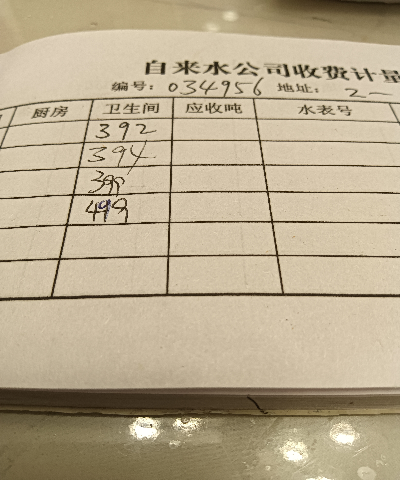 自来水公司收费计量
编号：034956 地址：2-
厨房 卫生间 应收吨 水表号
392
394
399
499